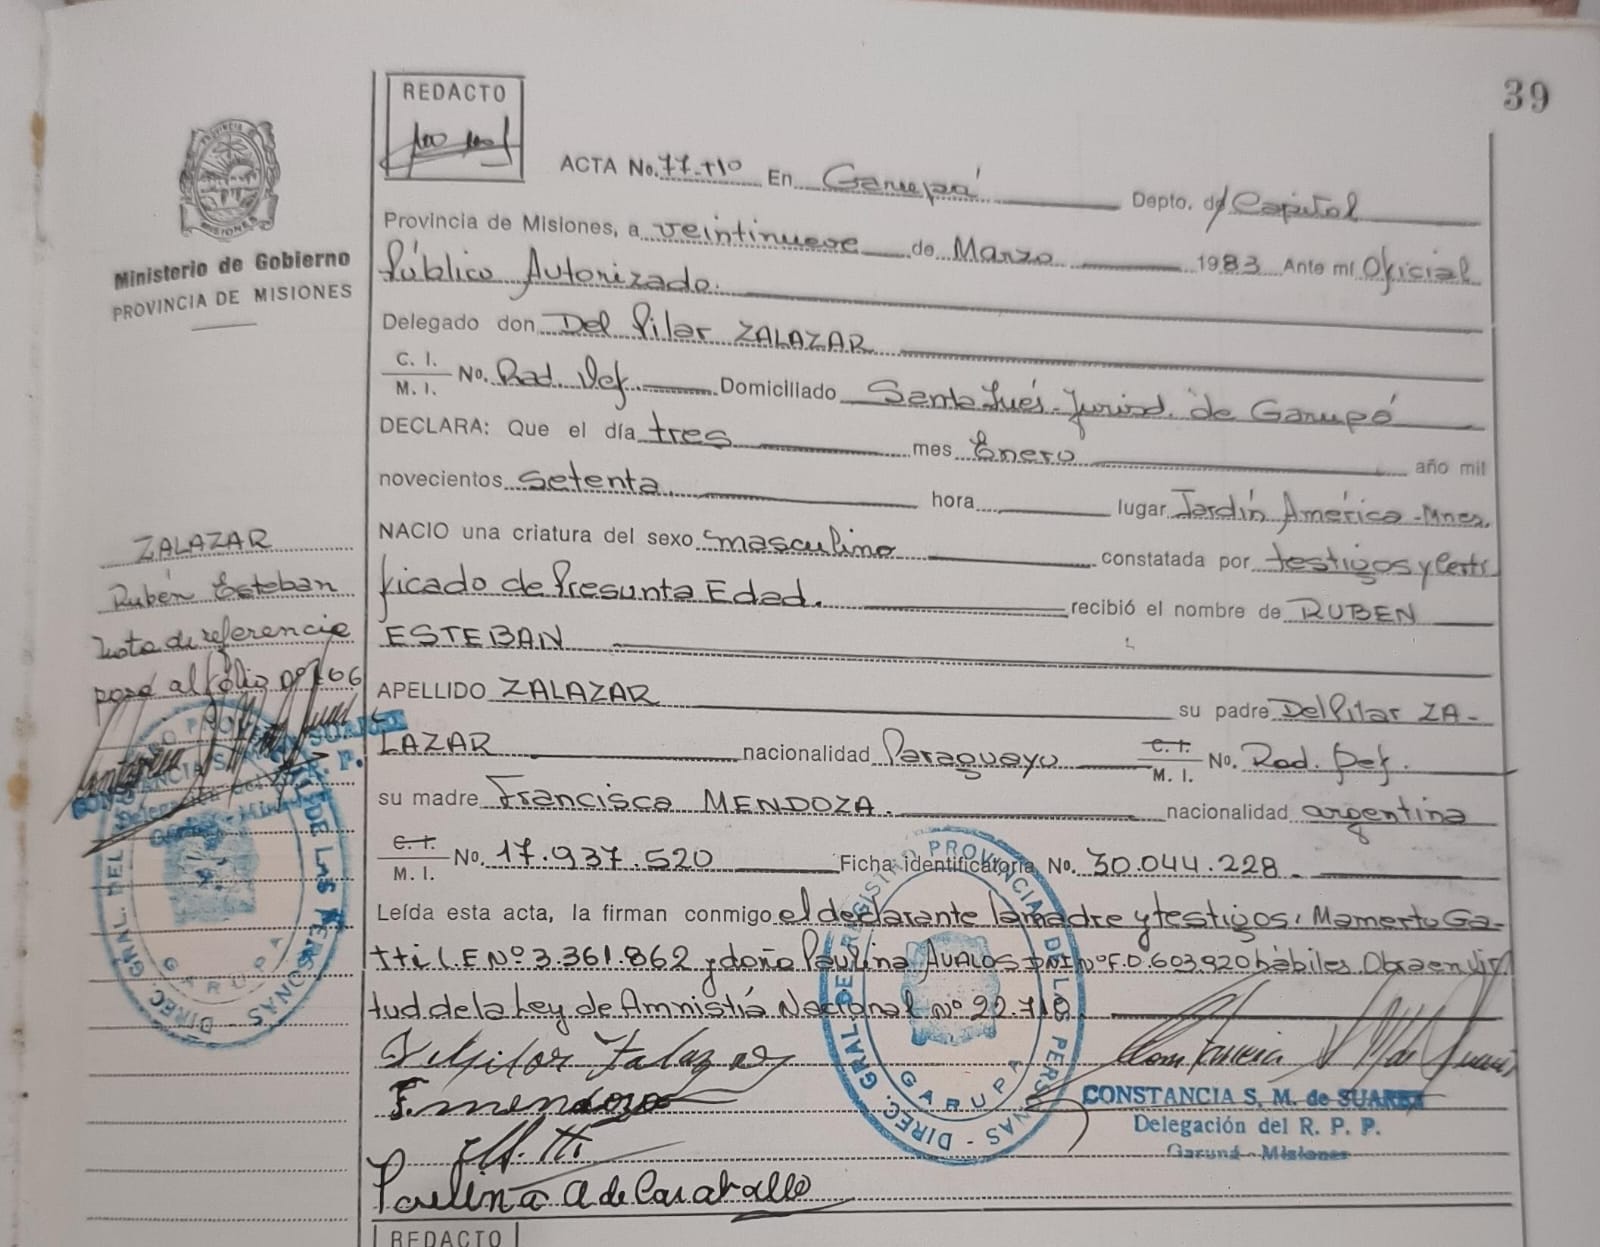 39
REDACTO
ACTA No. 77-Tº En Garupá Depto. de Capital
Provincia de Misiones, a veintinueve de Marzo 1983 Ante mi Oficial
Público Autorizado.
Delegado don Del Pilar ZALAZAR
C. I.
M. I. No. Rad. Def. Domiciliado Santa Inés - Jurisd. de Garupá
DECLARA: Que el día tres mes Enero año mil
novecientos setenta. hora lugar Jardín América - Mnes.
NACIO una criatura del sexo masculino constatada por testigos y Certi
ficado de Presunta Edad. recibió el nombre de RUBEN
ESTEBAN
APELLIDO ZALAZAR su padre Del Pilar ZA-
LAZAR nacionalidad Paraguayo C. I.
M. I. No. Rad. Def.
su madre Francisca MENDOZA. nacionalidad argentina
C. I.
M. I. No. 17.937.520 Ficha identificatoria No. 30.044.228.
Leída esta acta, la firman conmigo el declarante la madre y testigos, Mamerto Ga-
tti L.E Nº 3.361.862 y doña Paulina AVALOS DNI nº F.0.603.920 hábiles. Obra en vir
tud de la Ley de Amnistía Nacional nº 22.718
Delpilar Zalazar
F. mendoza
Paulina A de Caraballo
CONSTANCIA S. M. de SUAREZ
Delegación del R. P. P.
Garupá - Misiones
DIREC. GRAL. DEL REGISTRO PROVINCIAL DE LAS PERSONAS
GARUPA
PROVINCIA DE
MISIONES
Ministerio de Gobierno
PROVINCIA DE MISIONES
ZALAZAR
Rubén Esteban
Nota de referencia
pasa al folio nº 106
CONSTANCIA S. M. de SUAREZ
Delegación del R. P. P.
Garupá - Misiones
DIREC. GRAL. DEL REGISTRO PROVINCIAL DE LAS PERSONAS
GARUPA
REDACTO